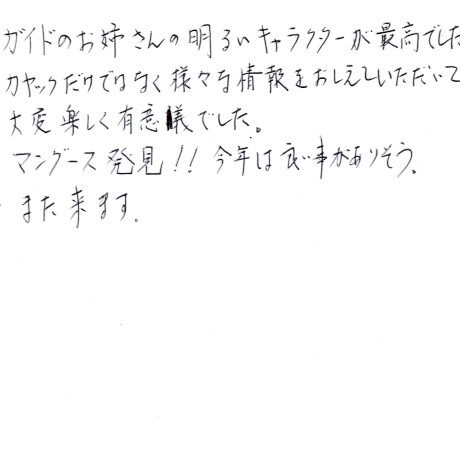 ガイドのお姉さんの明るいキャラクターが最高でした
カヤックだけではなく様々な情報をおしえていただいて
大変楽しく有意義でした。
マングース発見!!今年は良い事がありそう。
また来ます.